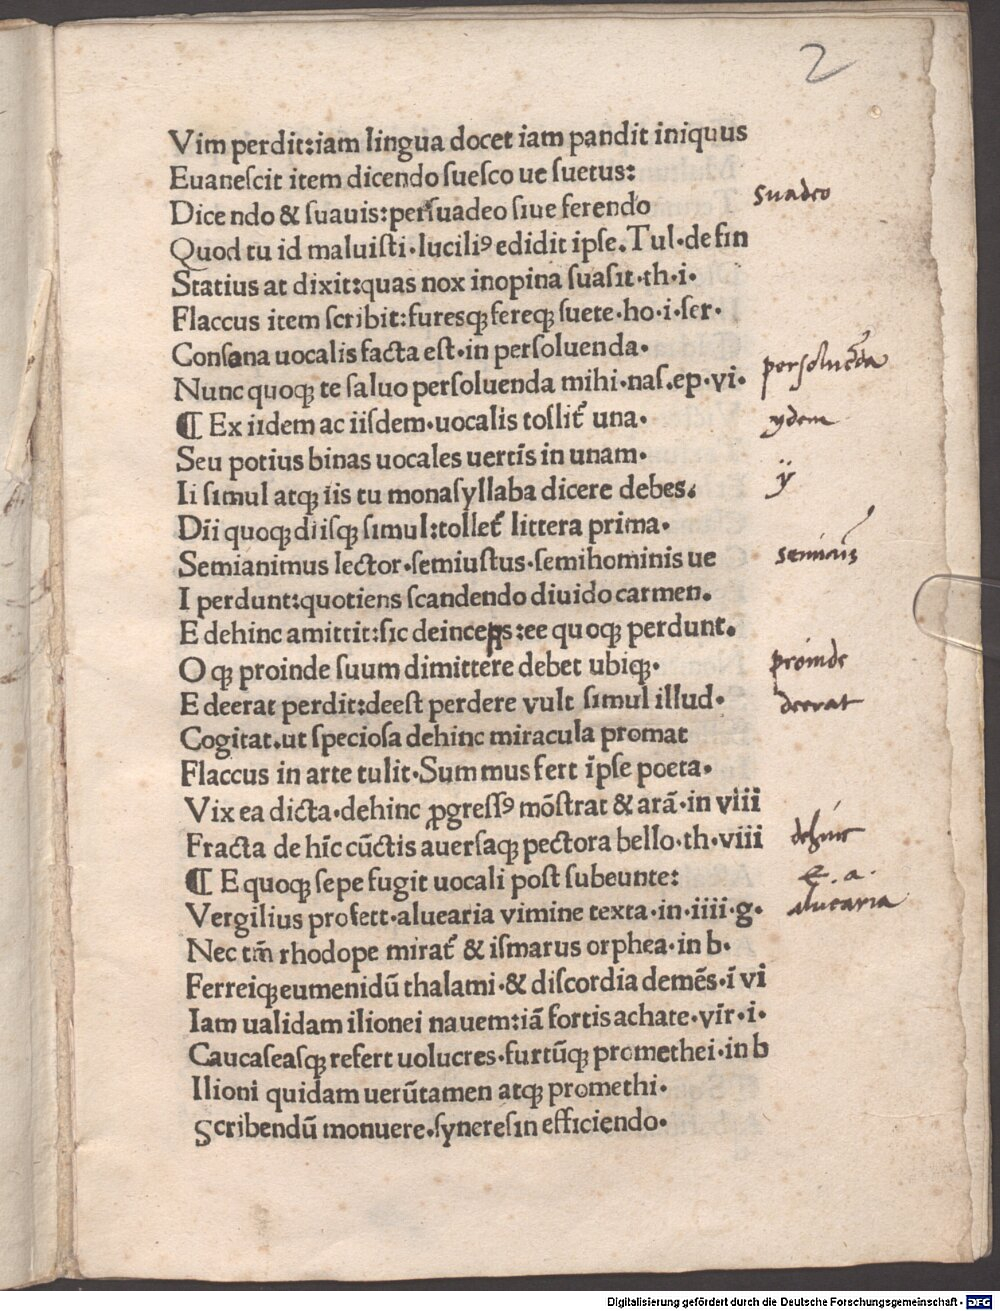 2
Vim perdit:iam lingua docet iam pandit iniquus
Euanescit item dicendo suesco ue suetus:
Dice ndo & suauis:persuadeo siue ferendo
suadeo
Quod tu id maluisti·luciliꝰ edidit ipse.Tul·de fin
Statius at dixit:quas nox inopina suasit·th·i·
Flaccus item scribit:furesqꝫ fereqꝫ suete·ho·i·ser·
Consona uocalis facta est·in persoluenda·
Nunc quoqꝫ te saluo persoluenda mihi·nas.ep·vi·
persoluēda
¶ Ex iidem ac iisdem·uocalis tollit᷑ una·
ydem
Seu potius binas uocales uertīs in unam·
Ii simul atqꝫ iis tu monasyllaba dicere debes.
ÿ
Dii quoqꝫ diisqꝫ simul:tollet᷑ littera prima·
Semianimus lector·semiustus·semihominis ue
I perdunt:quotiens scandendo diuido carmen.
E dehinc amittit:sic deinceps:ee quoqꝫ perdunt.
O qꝫ proinde suum dimittere debet ubiqꝫ·
proinde
E deerat perdit:deest perdere vult simul illud·
deerat
Cogitat.ut speciosa dehinc miracula promat
Flaccus in arte tulit·Summus fert īpse poeta·
Vix ea dicta·dehinc ꝓgressꝰ mōstrat & arā·in viii
Fracta de hīc cūctis auersaqꝫ pectora bello·th·viii
dehinc
¶ E quoqꝫ sepe fugit uocali post subeunte:
E. a.
Vergilius profert·aluearia vimine texta·in·iiii·g·
aluearia
Nec tm̄ rhodope mirat᷑ & ismarus orphea·in b·
Ferreiqꝫ eumenidū thalami·& discordia demēs·ī vi
Iam ualidam ilionei nauem:iā fortis achate·vir·i·
Caucaseasqꝫ refert uolucres·furtūqꝫ promethei·in b
Ilioni quidam uerūtamen atqꝫ promethi·
Scribendū monuere.syneresin efficiendo·
Digitalisierung gefördert durch die Deutsche Forschungsgemeinschaft - DFG